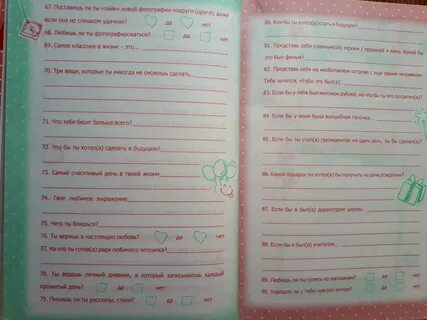 67. Поставишь ли ты «лайк» новой фотографии подруги (друга), даже
если она не слишком удачная? да нет
68. Любишь ли ты фотографироваться? да нет
69. Самое классное в жизни – это...
70. Три вещи, которые ты никогда не сможешь сделать...
71. Что тебя бесит больше всего?
72. Что бы ты хотел(а) сделать в будущем?
73. Самый счастливый день в твоей жизни
74. Твое любимое выражение
75. Чего ты боишься?
76. Ты веришь в настоящую любовь? да нет
77. На что ты готов(а) ради любимого человека?
78. Ты ведешь личный дневник, в который записываешь каждый
прожитый день? да нет
79. Пишешь ли ты рассказы, стихи? да нет
80. Кем бы ты хотел(а) стать в будущем?
81. Представь себя главным(ой) героем / героиней в кино. Какой бы
это был фильм?
82. Представь себя на необитаемом острове с еще одним человеком.
Тебе хочется, чтобы это был(а)
83. Если бы у тебя был миллион рублей, на что бы ты его потратил(а)?
84. Если бы у меня была волшебная палочка...
85. Если бы ты стал(а) президентом на один день, ты бы сделал(а)?
86. Какой подарок ты хотел(а) бы получить на день рождения?
87. Если бы я был(а) директором школы
88. Если бы я был(а) учителем
89. Любишь ли ты гулять по магазинам? да нет
90. Хорошее ли у тебя чувство юмора? да нет